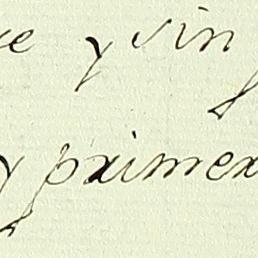 e y sin
y primer